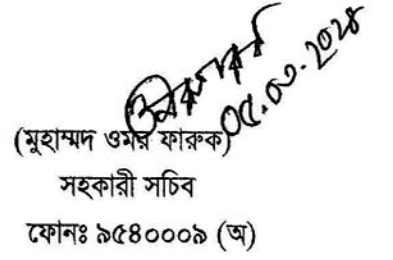 ০৫.০৩.২০২৪
(মুহাম্মদ ওমর ফারুক)
সহকারী সচিব
ফোনঃ ৯৫৪০০০৯ (অ)